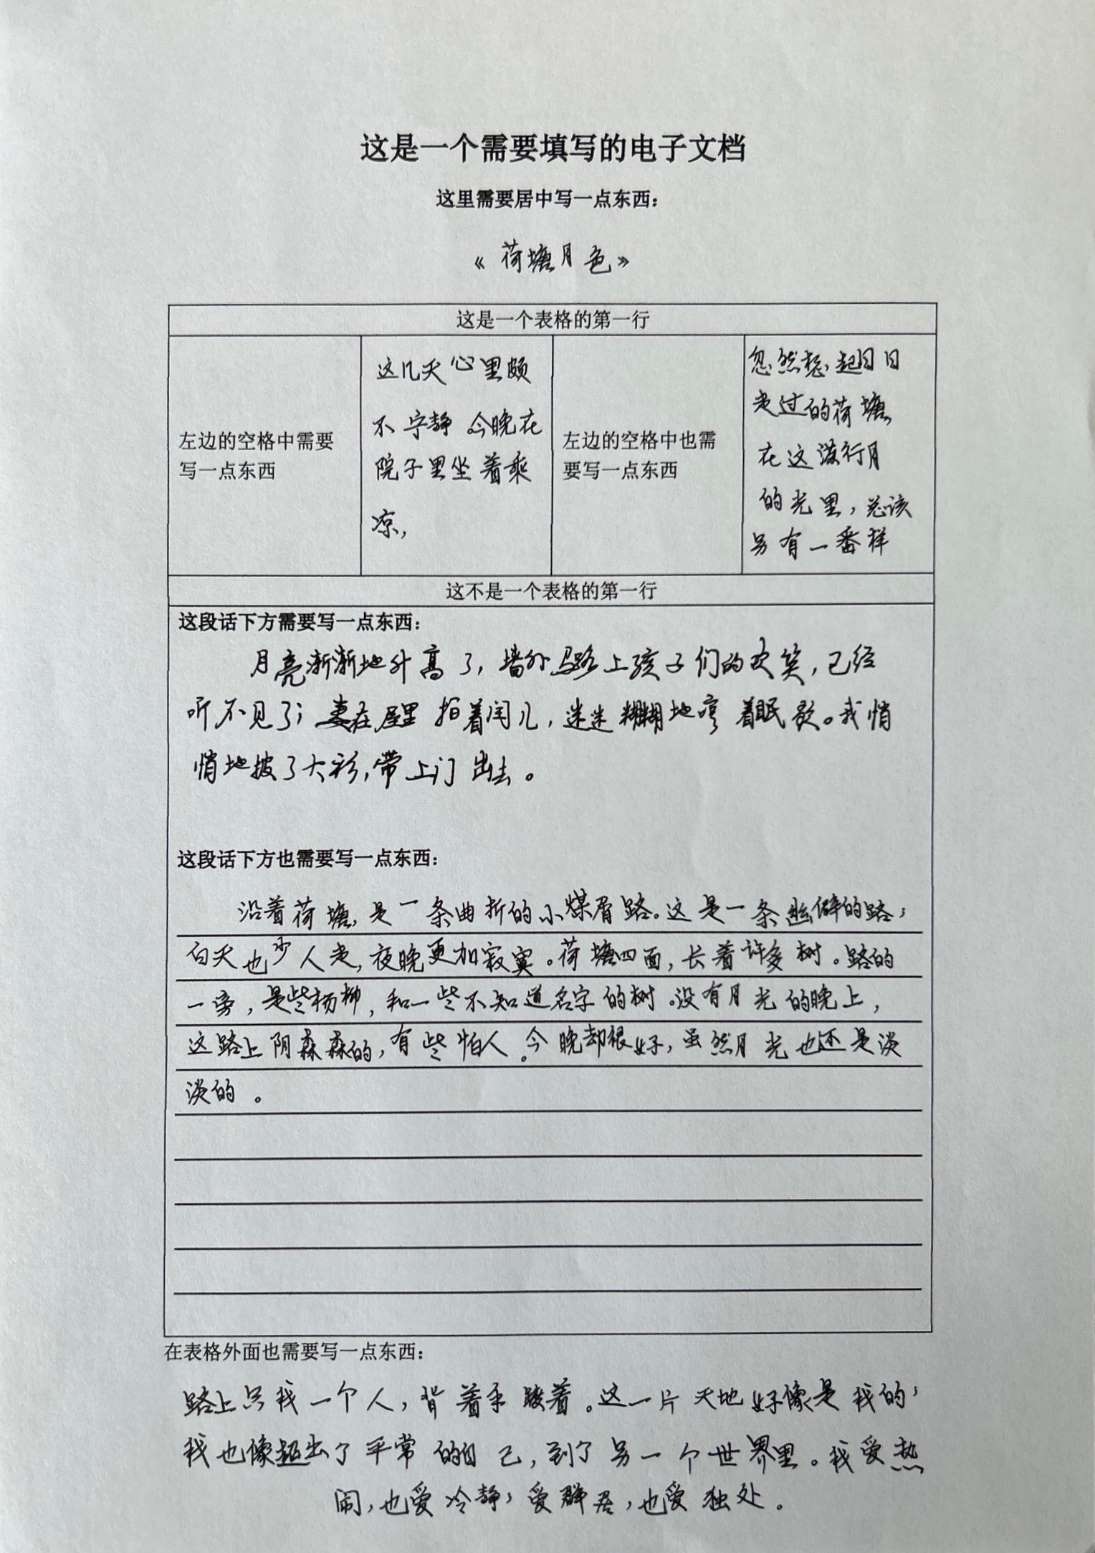 这是一个需要填写的电子文档
这里需要居中写一点东西：
《荷塘月色》
这是一个表格的第一行
左边的空格中需要
写一点东西
这几天心里颇
不宁静 今晚在
院子里坐着乘
凉，
左边的空格中也需
要写一点东西
忽然想起日日
走过的荷塘，
在这满月
的光里，总该
另有一番样
这不是一个表格的第一行
这段话下方需要写一点东西：
月亮渐渐地升高了，墙外马路上孩子们的欢笑，已经
听不见了；妻在屋里拍着闰儿，迷迷糊糊地哼着眠歌。我悄
悄地披了大衫，带上门出去。
这段话下方也需要写一点东西：
沿着荷塘，是一条曲折的小煤屑路。这是一条幽僻的路；
白天也少人走，夜晚更加寂寞。荷塘四面，长着许多树。路的
一旁，是些杨柳，和一些不知道名字的树。没有月光的晚上，
这路上阴森森的，有些怕人。今晚却很好，虽然月光也还是淡
淡的。
在表格外面也需要写一点东西：
路上只我一个人，背着手踱着。这一片天地好像是我的；
我也像超出了平常的自己，到了另一个世界里。我爱热
闹，也爱冷静；爱群居，也爱独处。